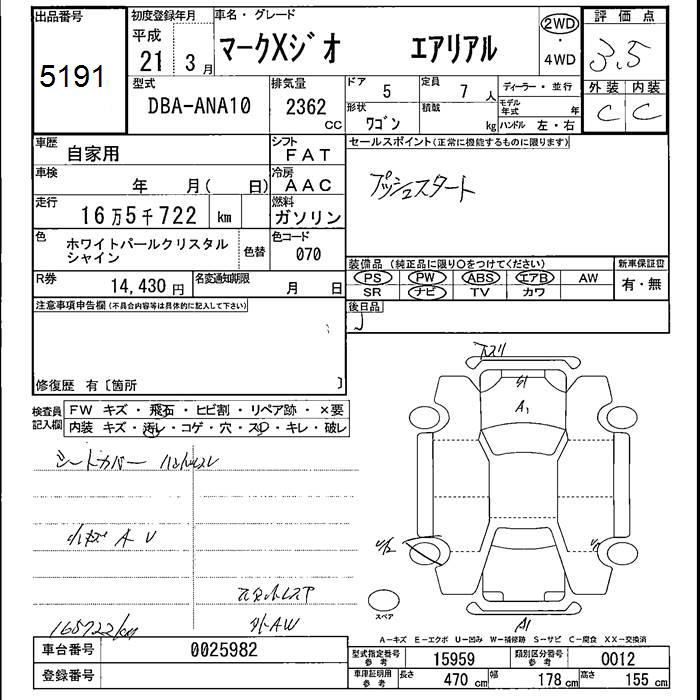 出品番号
5191
初度登録年月
平成
21 3月
車名・グレード
マークXジオ エアリアル
2WD
・
4WD
評価点
3.5
外装 内装
C C
型式
DBA-ANA10
排気量
2362
cc
ドア 5
定員 7 人
形状
ワゴン
積載
kg
ディーラー・並行
モデル年式 年
ハンドル 左・右
車歴 自家用
シフト
FAT
車検 年 月( 日)
冷房
AAC
走行 16万5千722 km
燃料
ガソリン
色 ホワイトパールクリスタル
シャイン
色替
色コード
070
R券 14,430 円
名変通知期限
月 日
セールスポイント(正常に機能するものに限ります)
プッシュスタート
装備品 (純正品に限り○をつけてください)
PS PW ABS エアB AW
SR ナビ TV カワ
新車保証書
有・無
後日品
注意事項申告欄(不具合内容等は具体的に記入して下さい)
修復歴 有〔箇所 〕
検査員
記入欄
FW キズ・飛石・ヒビ割・リペア跡・×要
内装 キズ・汚レ・コゲ・穴・スレ・キレ・破レ
シートカバー ハンドルスレ
小キズ A U
165722km
社外AW
下スリ
S1
A1
A1
スペア
A-キズ E-エクボ U-凹み W-補修跡 S-サビ C-腐食 XX-交換済
車台番号 0025982
登録番号
型式指定番号
参考
15959
類別区分番号
参考
0012
車庫証明用
参考
長さ 470 cm
幅 178 cm
高さ 155 cm